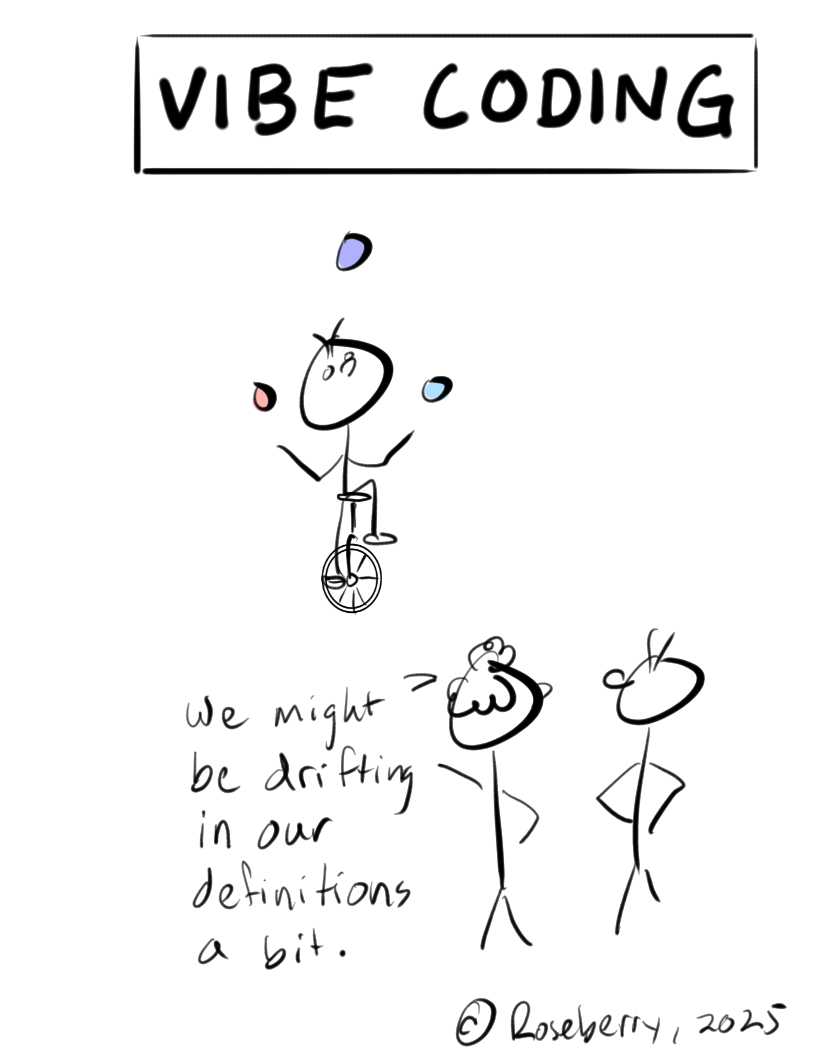 VIBE CODING
We might
be drifting
in our
definitions
a bit.
© Roseberry, 2025